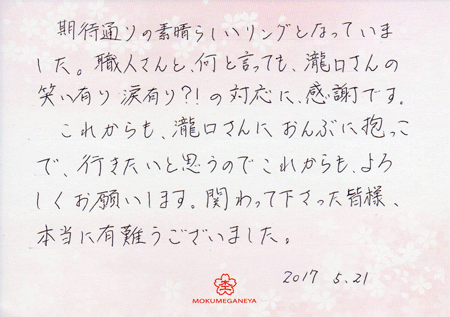 期待通りの素晴らしいリングとなっていま
した。職人さんと、何と言っても、瀧口さんの
笑い有り涙有り?!の対応に、感謝です。
これからも、瀧口さんにおんぶに抱っこ
で、行きたいと思うのでこれからも、よろ
しくお願いします。関わって下さった皆様、
本当に有難うございました。
2017 5.21
MOKUMEGANEYA